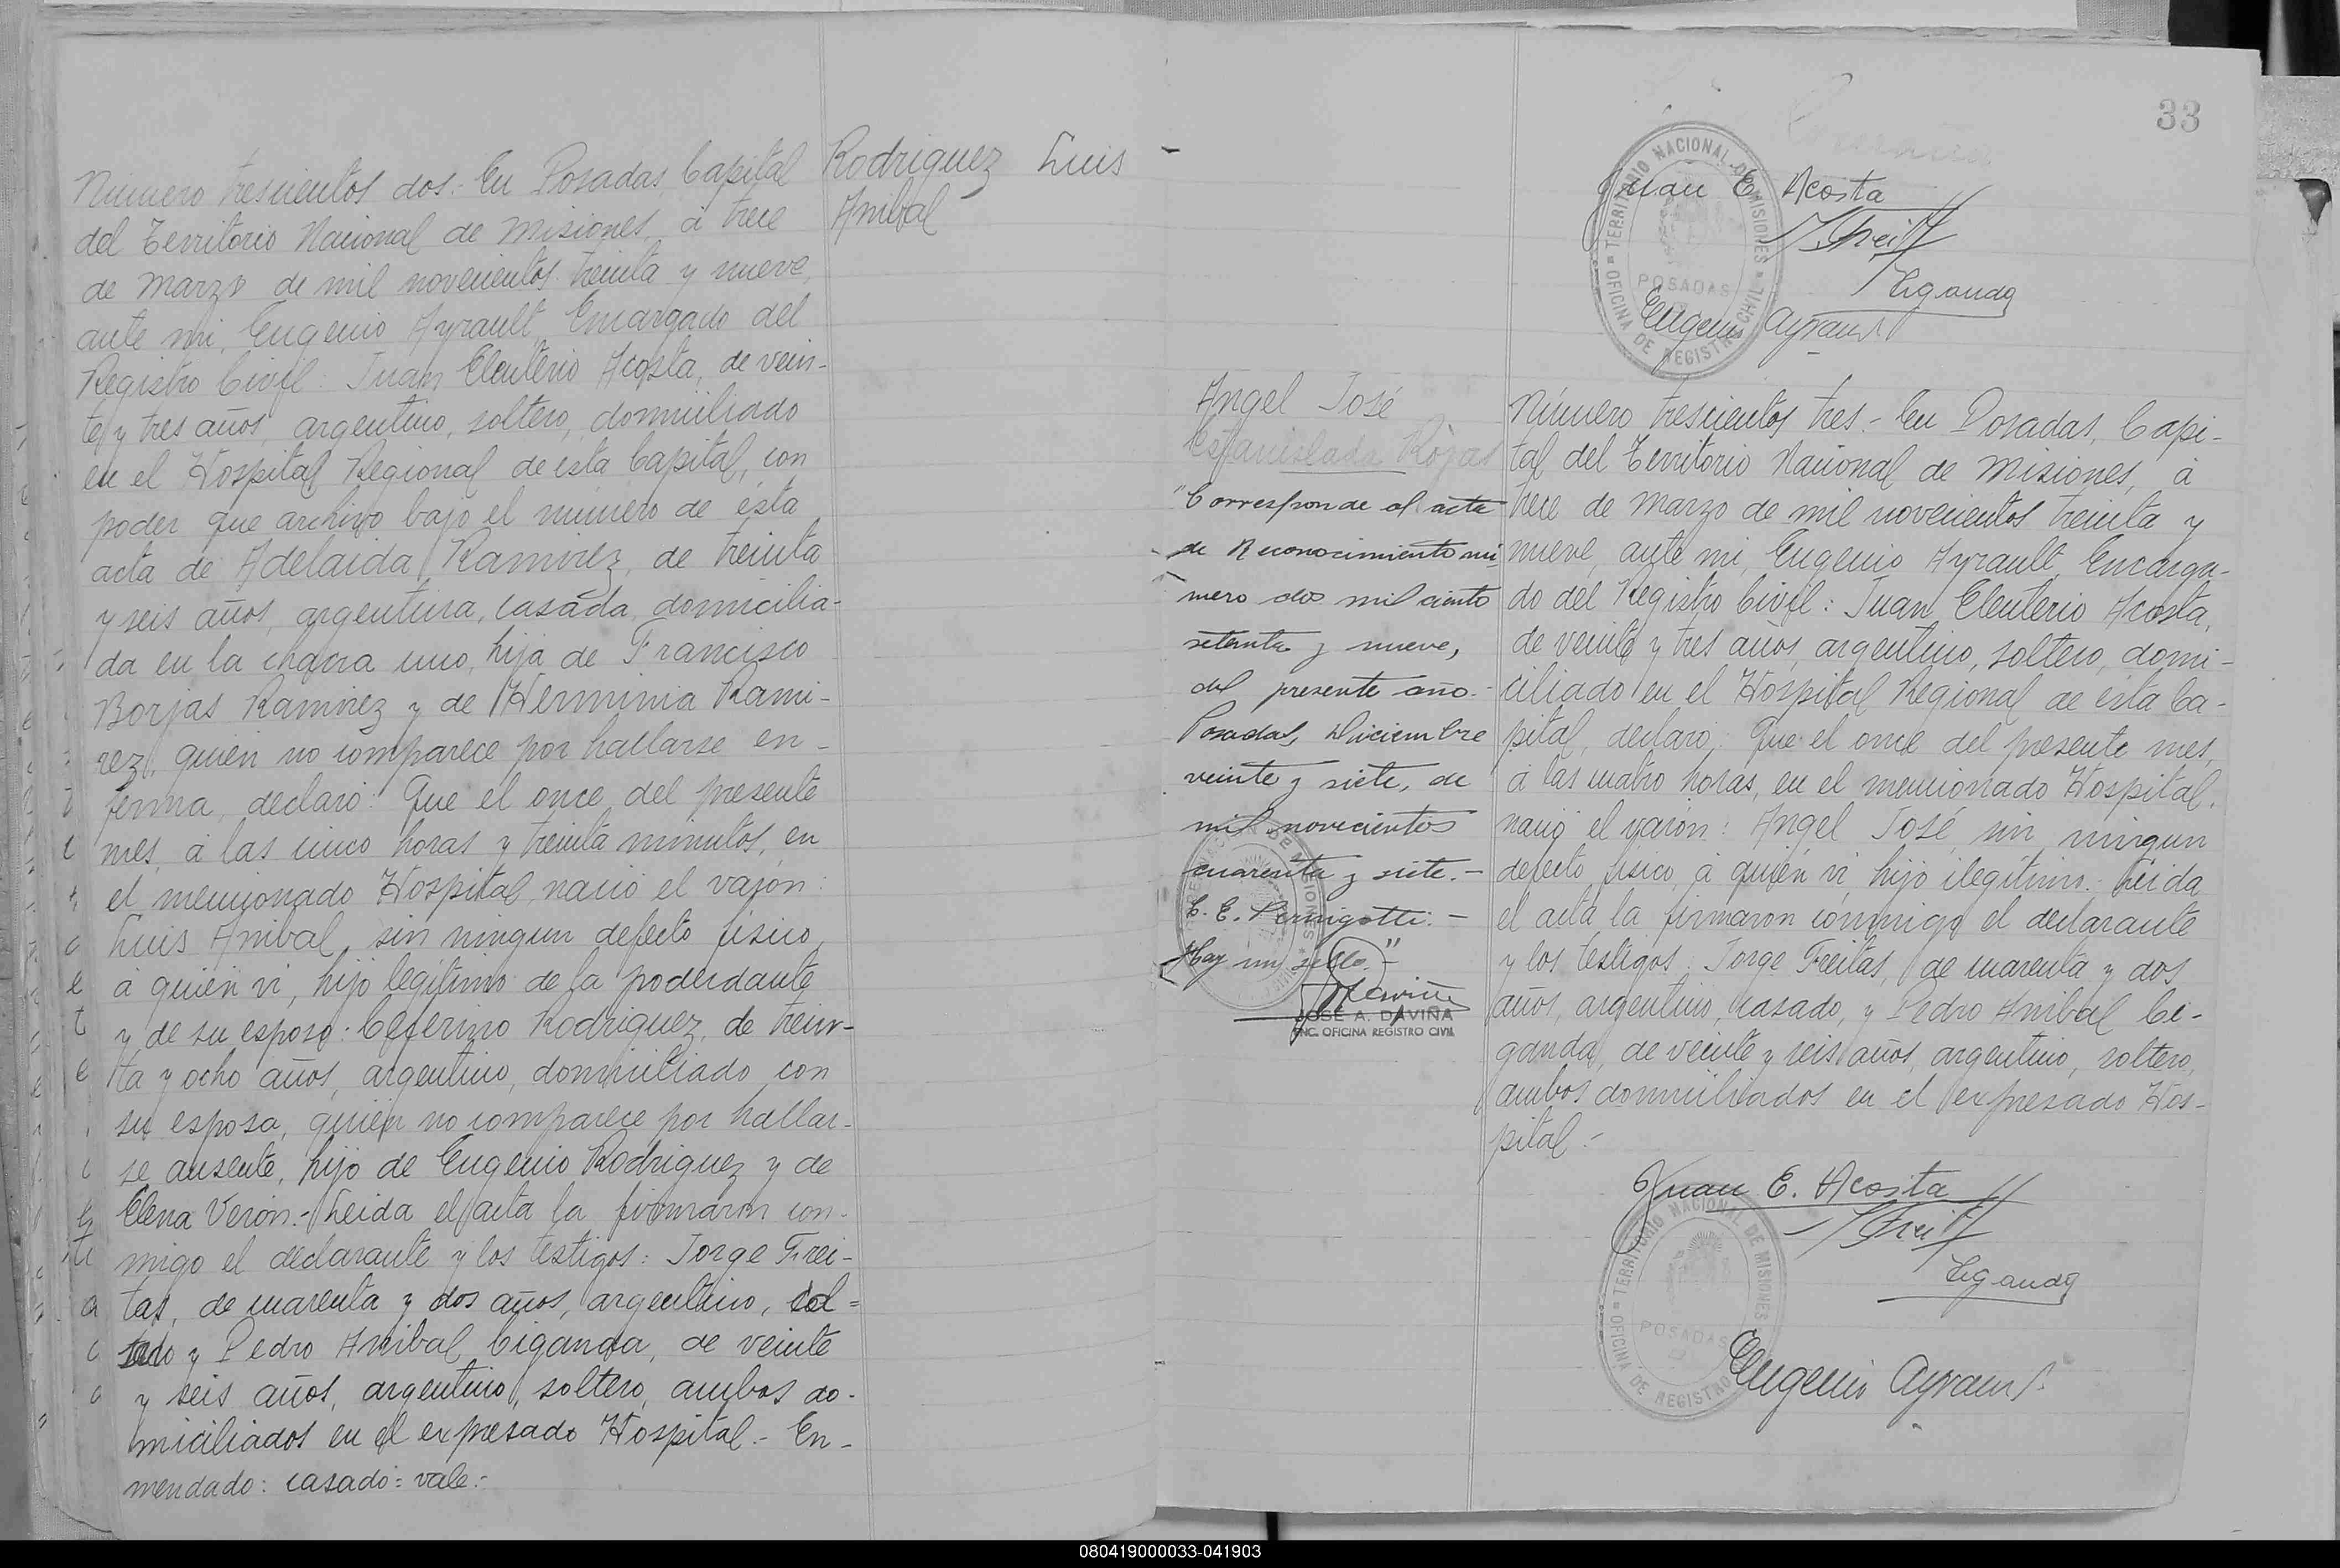 Número trescientos dos: En Posadas, Capital
del Territorio Nacional de Misiones, á trece
de Marzo de mil novecientos treinta y nueve,
ante mi, Eugenio Ayrault, Encargado del
Registro Civil: Juan Eleuterio Acosta, de vein-
te y tres años, argentino, soltero, domiciliado
en el Hospital Regional de ésta Capital, con
poder que archivo bajo el número de ésta
acta de Adelaida Ramirez, de treinta
y seis años, argentina, casada, domicilia-
da en la chacra uno, hija de Francisco
Borjas Ramirez y de Herminia Rami-
rez, quién no comparece por hallarse en-
ferma, declaró: Que el once del presente
mes, á las cinco horas y treinta minutos, en
el mencionado Hospital, nació el varón:
Luis Anibal, sin ningun defecto físico,
á quién vi, hijo legítimo de la poderdante
y de su esposo: Ceferino Rodriguez, de trein-
ta y ocho años, argentino, domiciliado con
su esposa, quién no comparece por hallar-
se ausente, hijo de Eugenio Rodriguez y de
Elena Verón.- Leida el acta la firmaron con-
migo el declarante y los testigos: Jorge Frei-
tas, de cuarenta y dos años, argentino,
y Pedro Anibal Ciganda, de veinte
y seis años, argentino, soltero, ambos do-
miciliados en el expresado Hospital.- En-
mendado: casado: vale.-
Rodriguez Luis
Anibal
33
TERRITORIO NACIONAL DE MISIONES
POSADAS
OFICINA DE REGISTRO CIVIL
Juan E. Acosta
Ciganda
Eugenio Ayrault
Angel José
Estanislada Rojas
"Corresponde al acta
de Reconocimiento nú-
mero dos mil ciento
setenta y nueve,
del presente año.-
Posadas, Diciembre
veinte y siete, de
mil novecientos
cuarenta y siete.-
C. E. Pernigotti.-
Hay un sello.-"
JOSE A. DAVIÑA
ENC. OFICINA REGISTRO CIVIL
Número trescientos tres.- En Posadas, Capi-
tal del Territorio Nacional de Misiones, á
trece de Marzo de mil novecientos treinta y
nueve, ante mi, Eugenio Ayrault, Encarga-
do del Registro Civil: Juan Eleuterio Acosta,
de veinte y tres años, argentino, soltero, domi-
ciliado en el Hospital Regional de ésta Ca-
pital, declaró: Que el once del presente mes,
á las cuatro horas, en el mencionado Hospital,
nació el varón: Angel José, sin ningun
defecto físico, á quién vi, hijo ilegítimo.- Leida
el acta la firmaron conmigo el declarante
y los testigos: Jorge Freitas, de cuarenta y dos
años, argentino, casado, y Pedro Anibal Ci-
ganda, de veinte y seis años, argentino, soltero,
ambos domiciliados en el expresado Hos-
pital.-
Juan E. Acosta
Ciganda
TERRITORIO NACIONAL DE MISIONES
POSADAS
OFICINA DE REGISTRO
Eugenio Ayrault
080419000033-041903